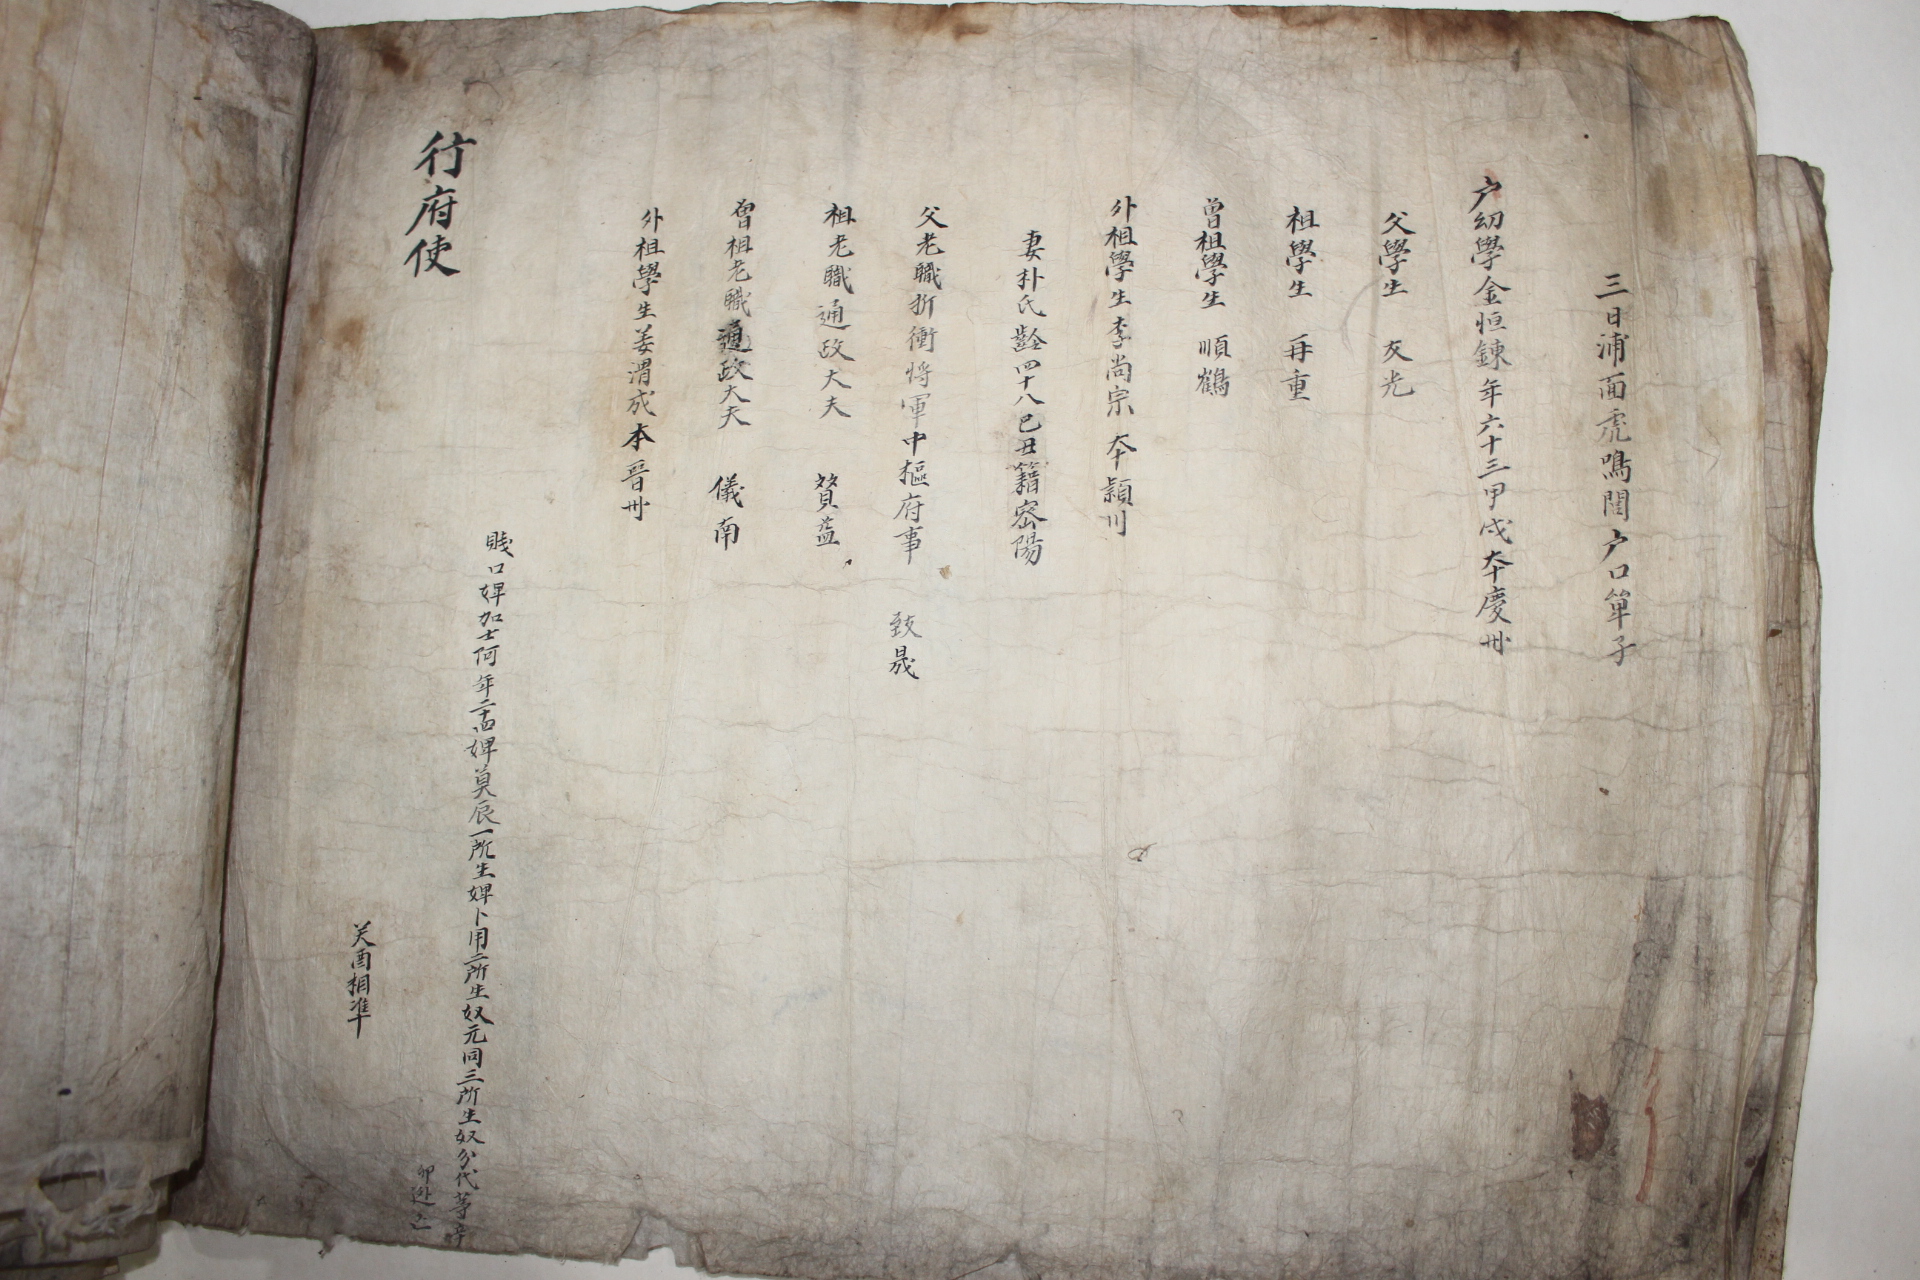 三日浦面虎鳴閭户口單子
户幼學金恒鍊年六十三甲戌本慶州
父學生 友光
祖學生 再重
曾祖學生 順鶴
外祖學生李尚宗 本潁川
妻朴氏齡四十八己丑籍密陽
父老職折衝將軍中樞府事 致晟
祖老職通政大夫 贊益
曾祖老職通政大夫 儀南
外祖學生姜渭成本晉州
賤口婢加士阿年二十四婢莫辰一所生婢卜用二所生奴元同三所生奴分代等辛
卯逃亡
行府使
癸酉相準